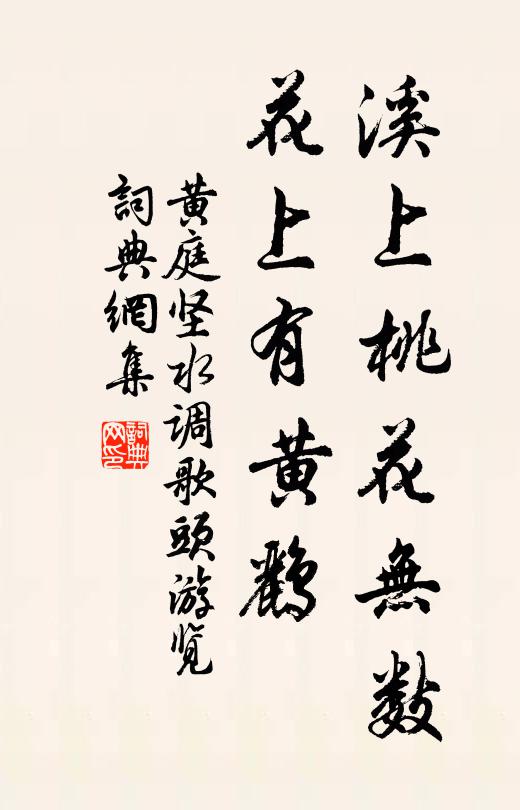 溪上桃花無数
花上有黄鸝
黄庭坚水调歌頭游览
詞典網集
詞典网印